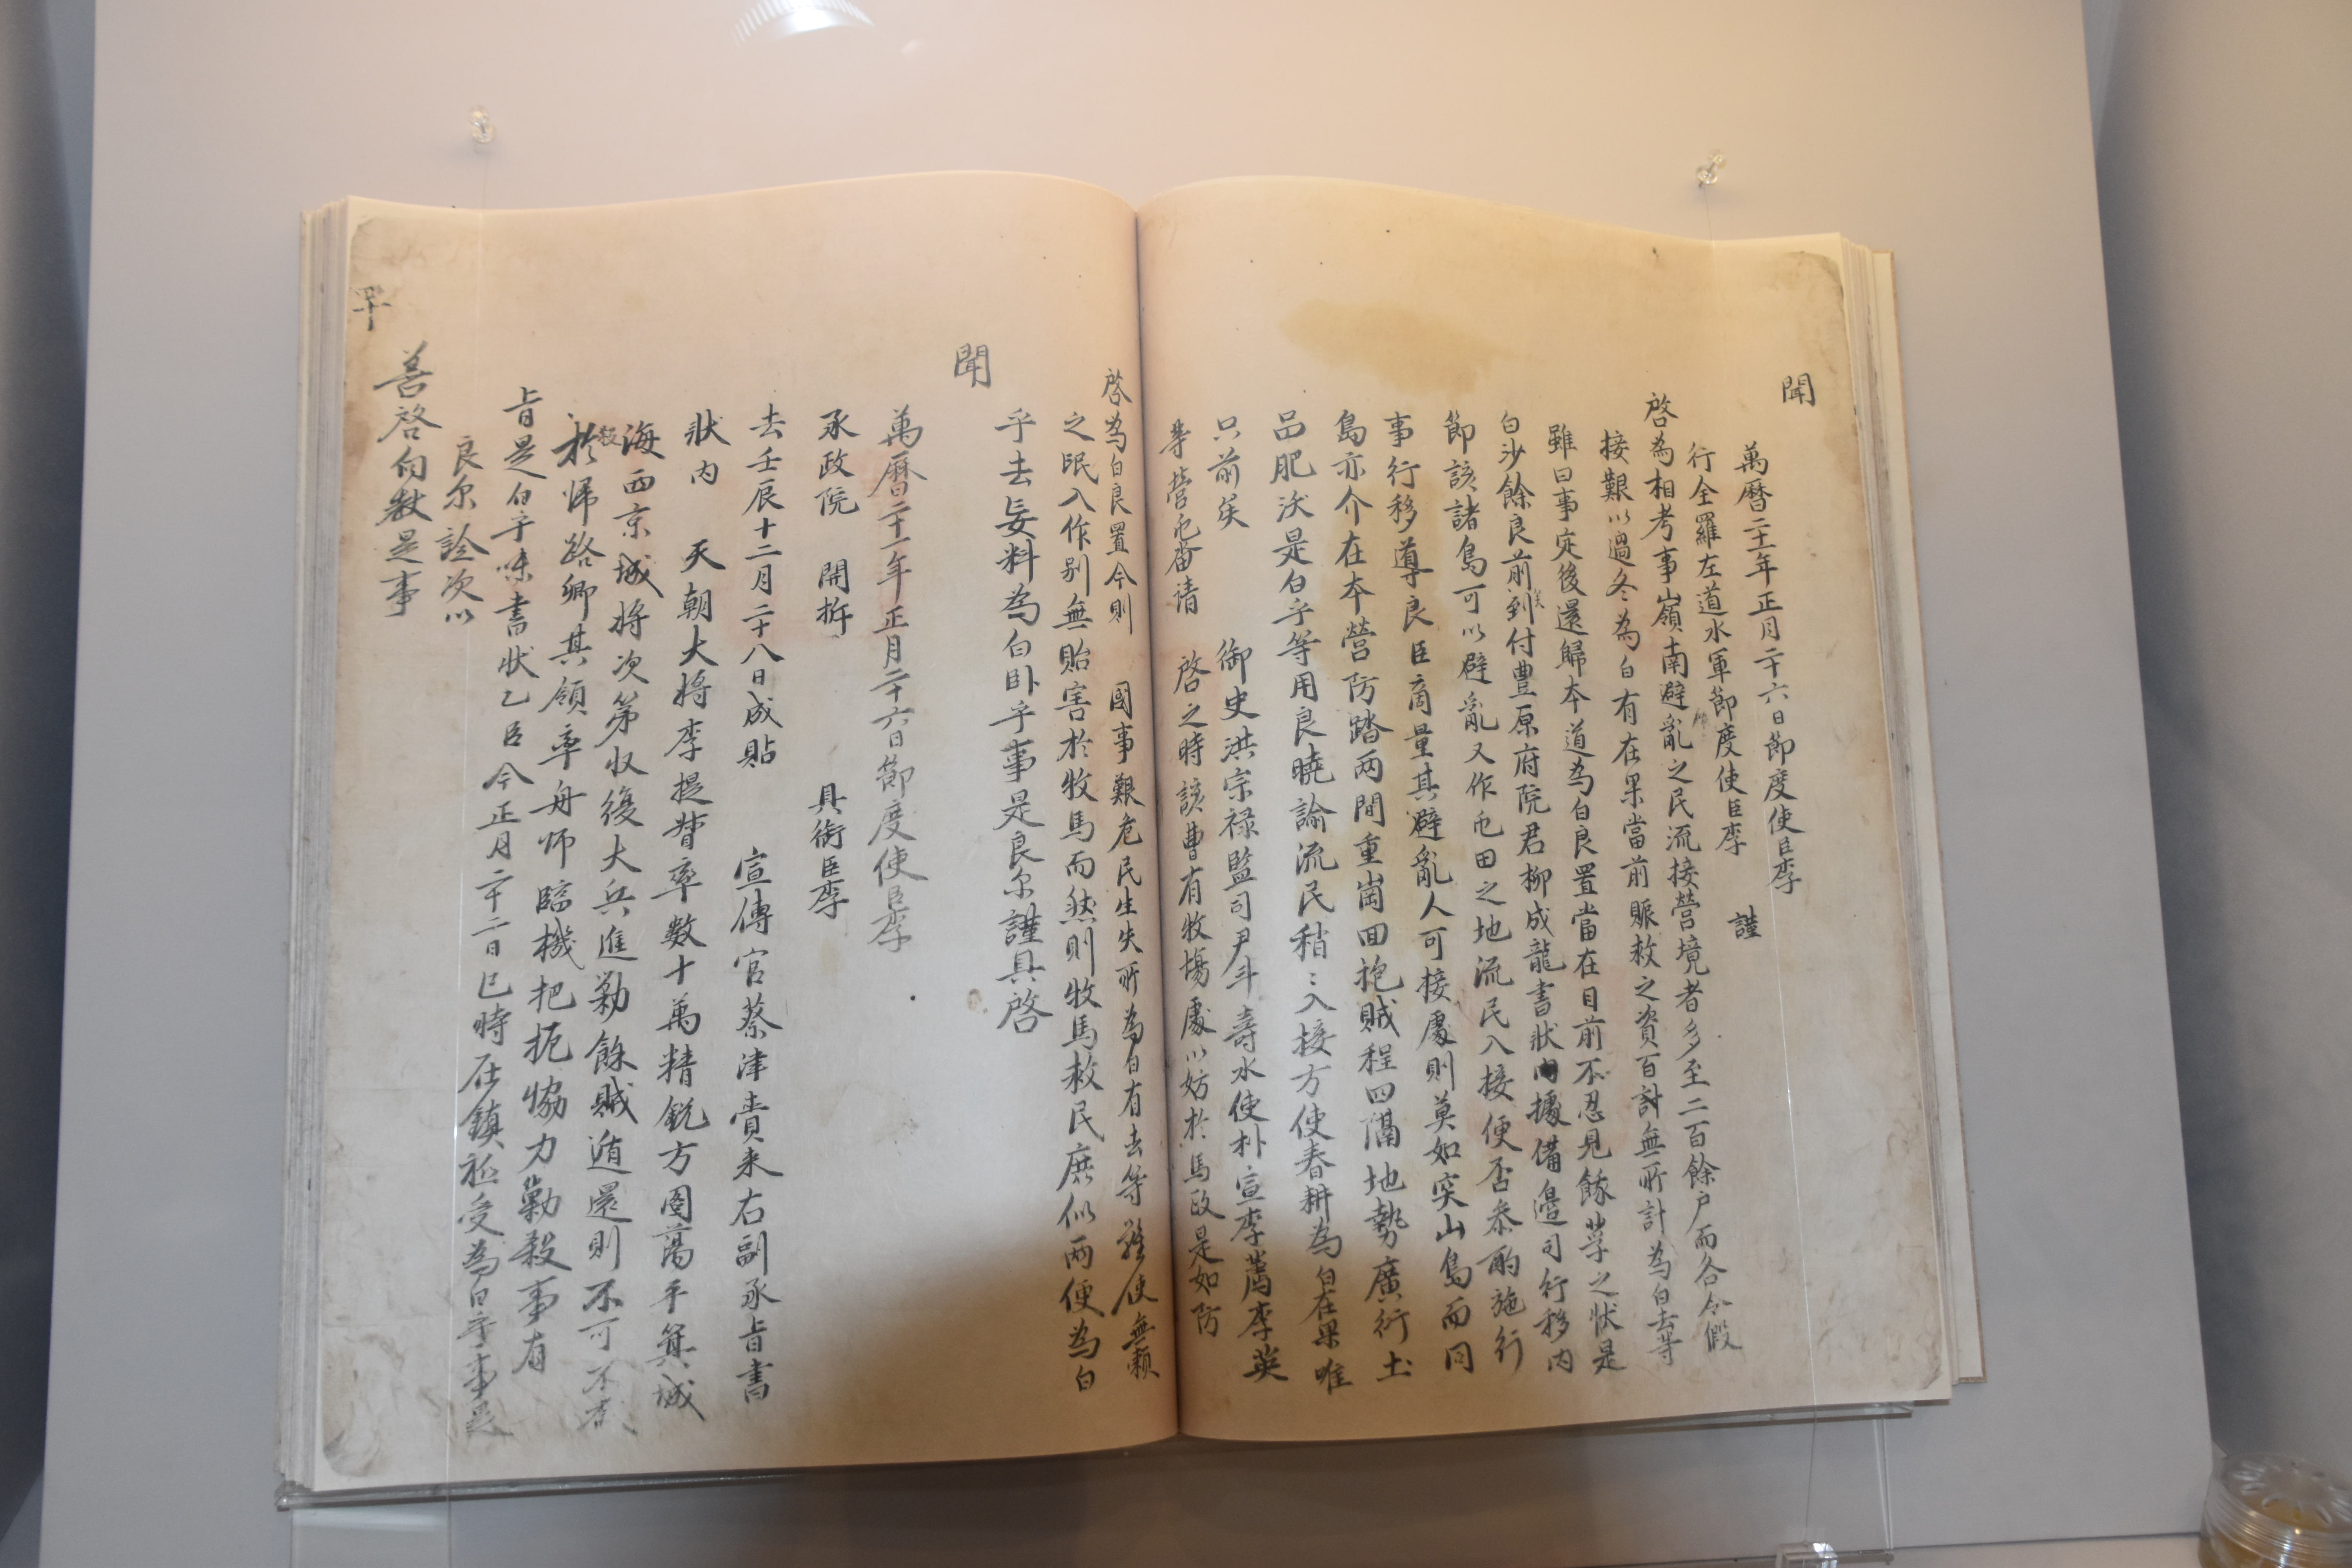 聞
萬曆二十一年正月二十六日節度使臣李
行全羅左道水軍節度使臣李 謹
啓為相考事嶺南避亂之民流接營境者多至二百餘戶而各令假
接艱以過冬為白有在果當前賑救之資百計無所計為白去等
雖曰事定後還歸本道為白良置當在目前不忍見餓莩之狀是
白沙餘良前矣到付豊原府院君柳成龍書狀內據備邊司行移內
節該諸島可以避亂又作屯田之地流民入接便否叅酌施行
事行移導良臣商量其避亂人可接處則莫如突山島而同
島亦介在本營防踏兩間重崗回抱賊程四隔地勢廣衍土
品肥沃是白乎等用良曉諭流民稍〻入接方使春耕為白在果唯
只前矣 御史洪宗祿監司尹斗壽水使朴宣李薦李英
等營屯畓請 啓之時該曹有牧塲處以妨於馬政是如防
啓為白良置今則 國事艱危民生失所為白有去等雖使無賴
之氓入作別無貽害於牧馬而然則牧馬救民庶似兩便為白
乎去妄料為白卧乎事是良尔謹具啓
聞
萬曆二十一年正月二十六日節度使臣李
承政院 開拆 具銜臣李
去壬辰十二月二十八日成貼 宣傳官蔡津賫来右副承旨書
狀內 天朝大將李提督率數十萬精銳方圖蕩平箕城
海西京城將次第収復大兵進勦餘賊遁還則不可不截
殺於歸路卿其領率舟師臨機把扼恊力勦殺事有
旨是白乎味書狀乙臣今正月二十二日巳時在鎮祗受為白乎事是
良尔詮次以
善啓向敎是事
四十